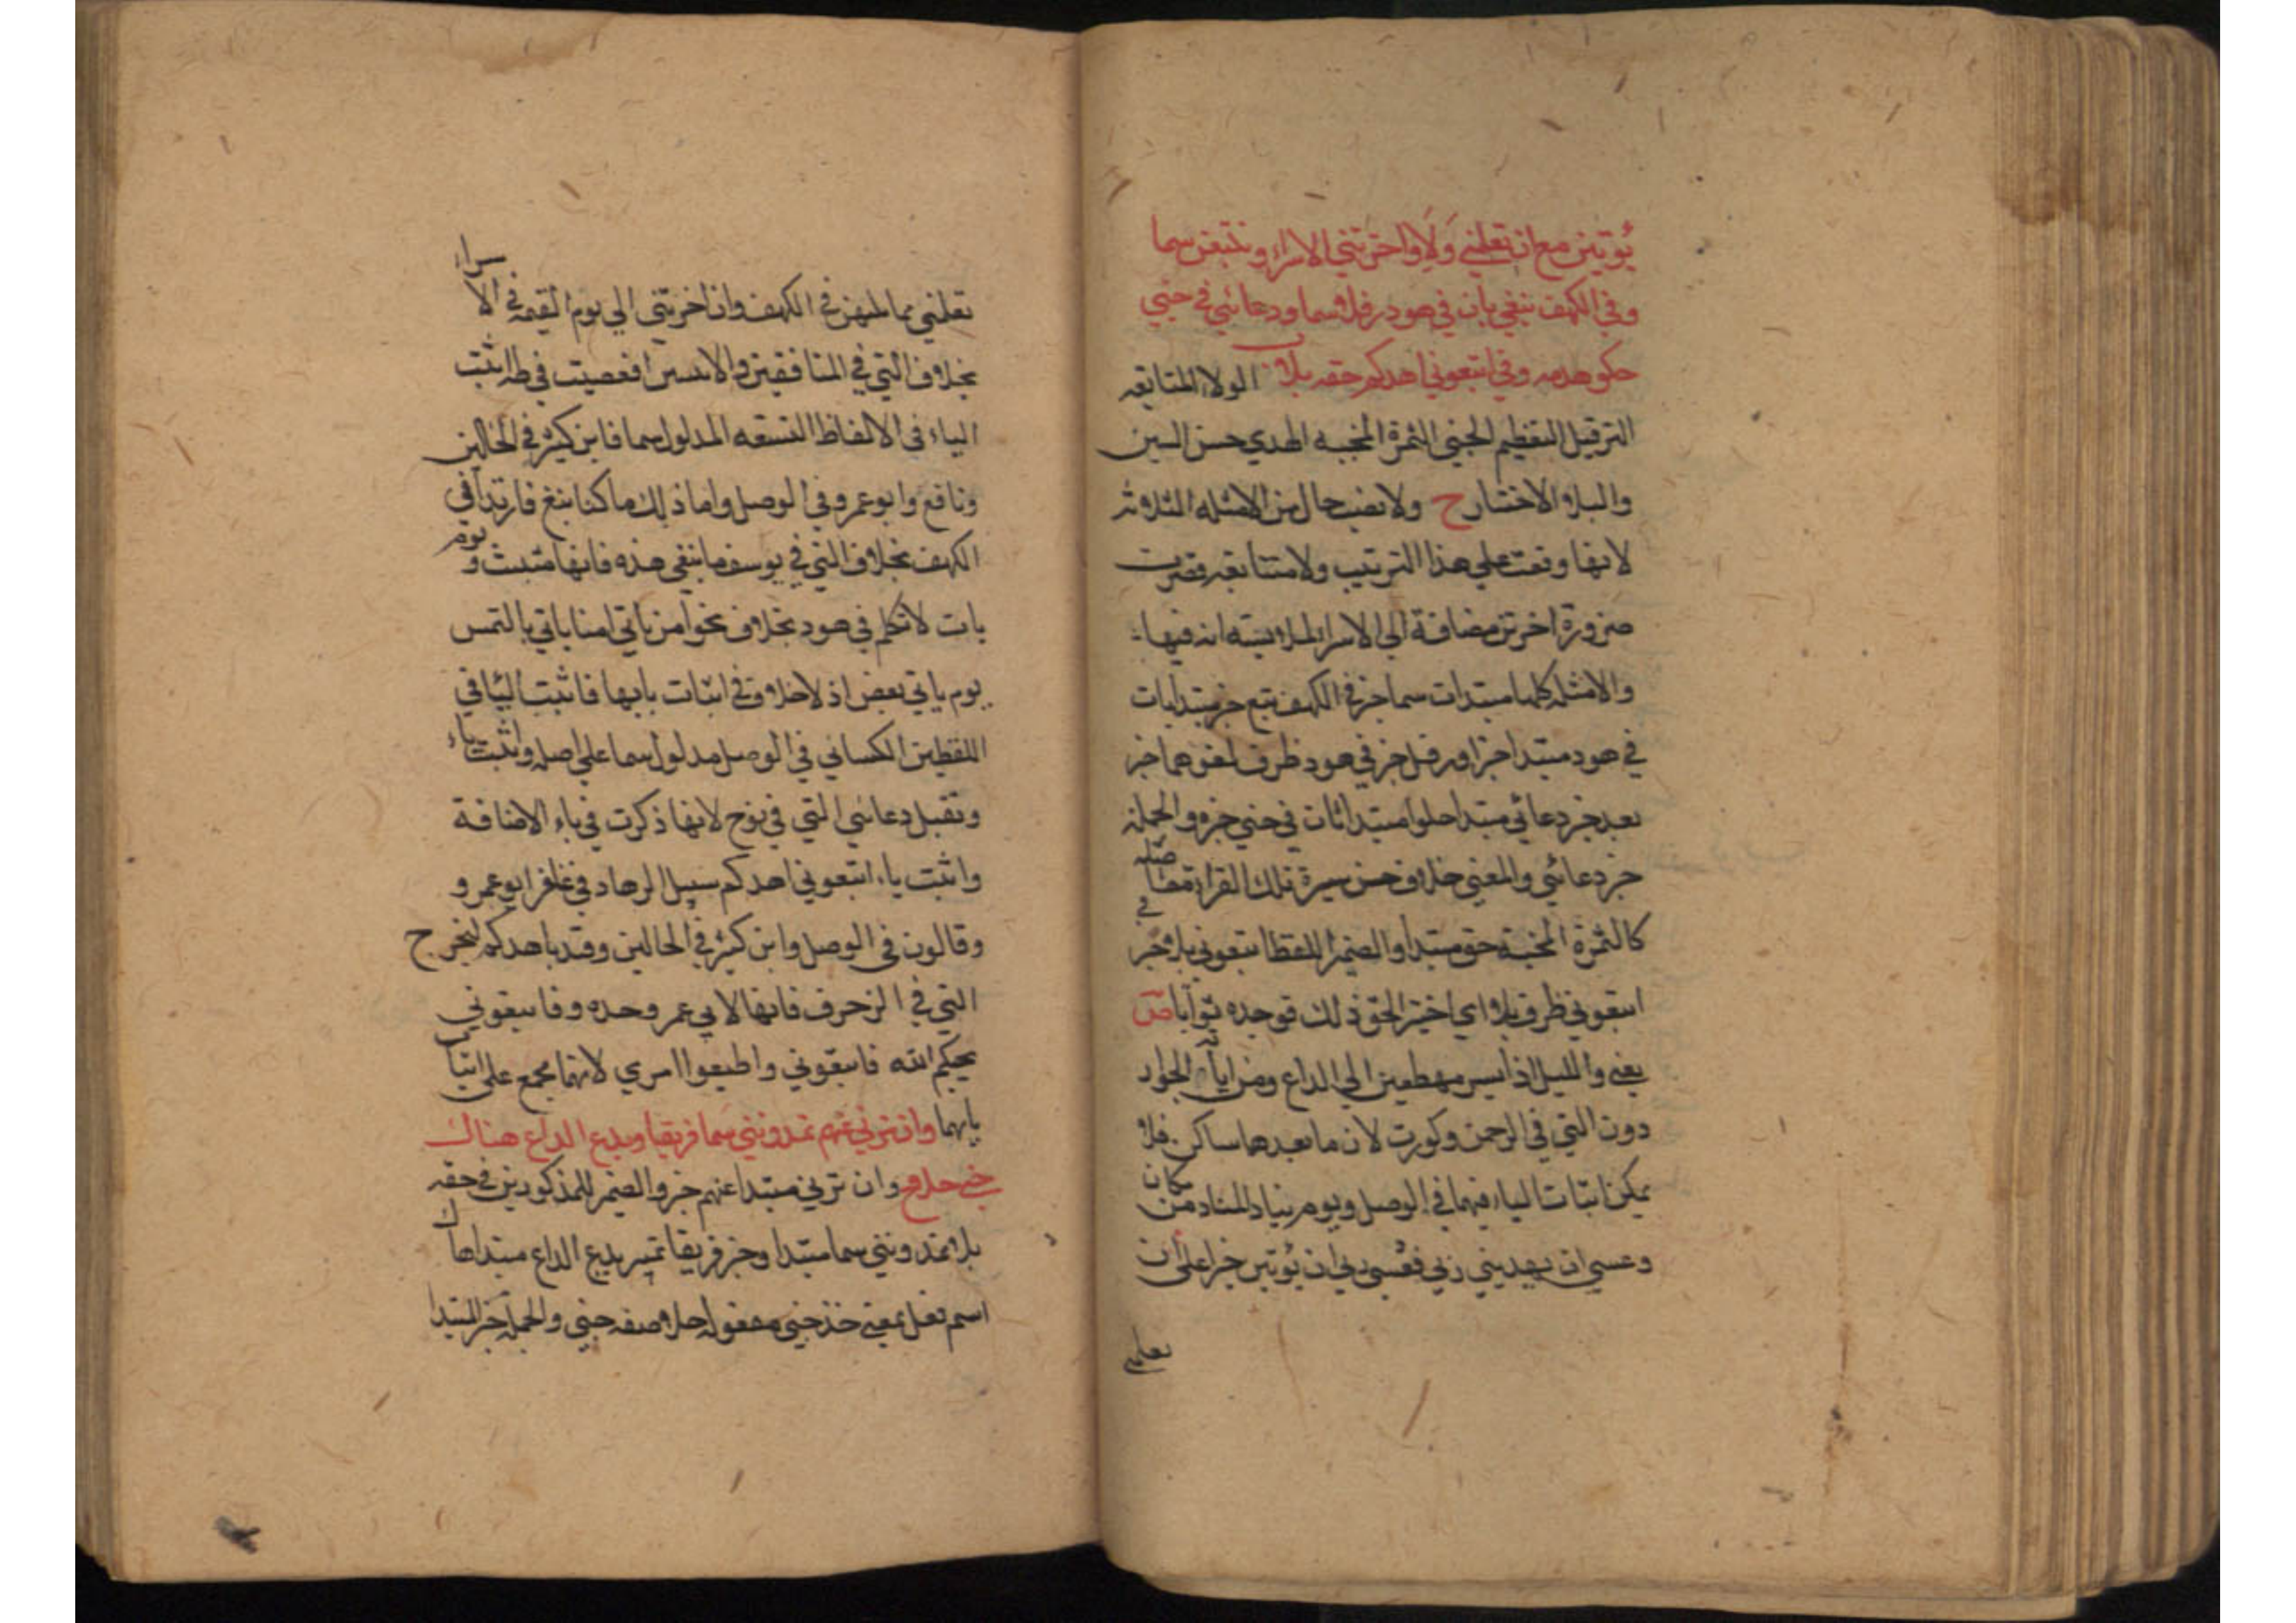 يُؤتين مع ان تعلمني وَلَا واخرتني الاسرا وتتبعن سما
وفي الكهف نبغي يأت في هود رفلا سما ودعائي في جني
حلو هديه وفي اتبعوني اهدكم حقه بلا الولا المتابعه
الترفيل التعظيم الجني الثمرة المجنيه الهدي حسن السير
والبلا الاختبار ح ولا نصب حال من الامثله الثلاثه
لانها وقعت علي هذا الترتيب ولا متتابعه قصرت
ضرورة اخرتن مضافة الي الاسرا لملابسته انه فيها
والامثله كلها مبتدات سما خبر في الكهف نبغ خبر مبتدا يات
في هود مبتدا خبر او رفل خبر في هود ظرف لغو سما خبر
بعد خبر دعائي مبتدا حلو مبتدا ثان في جني خبره والجمله
خبر دعائي والمعني حلاوة حسن سيرة تلك القراة متصله
كالثمرة المجنية حقه مبتدا والضمير للفظ اتبعوني بلا خبر
اتبعوني ظرف بلا اي اختبر الحق ذلك فوجده ثوابا ص
يعني والليل اذا يسر مهطعين الي الداع ومن اياته الجوار
دون التي في الرحمن وكورت لان ما بعدها ساكن فلا
يمكن اثبات الياء فيهما في الوصل ويوم يناد المناد من مكان
وعسي ان يهديني ربي فعسي ربي ان يُؤتين خيرا علي ان
تعلمني
تعلمني مما للمهن في الكهف وان اخرتني الي يوم القيمه في الاسراء
بخلاف التي في المنافقين والا تتبعن افعصيت في طه اثبت
الياء في الالفاظ التسعه المدلول سما فابن كثير في الحالين
ونافع وابو عمرو في الوصل واما ذلك ما كنا نبغ فارتدا في
الكهف بخلاف التي في يوسف ما نبغي هذه فانها مثبت و يوم
يات لا تكلم في هود بخلاف نحو امن ياتي امنا ياتي بالشمس
يوم ياتي بعض اذ لا خلاف في اثبات يايها فاثبت اليا في
اللفظين الكسائي في الوصل مدلول سما علي اصله واثبت ياء
وتقبل دعائي التي في نوح لانها ذكرت في ياء الاضافة
واثبت ياء اتبعوني اهدكم سبيل الرشاد في غافر ابو عمرو و
وقالون في الوصل وابن كثير في الحالين وقيد باهدكم ليخرج
التي في الزخرف فانها لابي عمر وحده وفاتبعوني
يحبكم الله فاتبعوني واطيعوا امري لانهما مجمع علي اثبات
يايهما وان ترني عنهم تمدونني سما فريقا ويدع الداع هناك
جني حلا ح وان ترني مبتدا عنهم خبر والضمير للمذكورين في حقه
بلا تمدونني سما مبتدا وخبر فريقا تمييز يدع الداع مبتدا هاك
اسم فعل بمعني خذ جني مفعوله حلا صفه جني والجملة خبر المبتدا